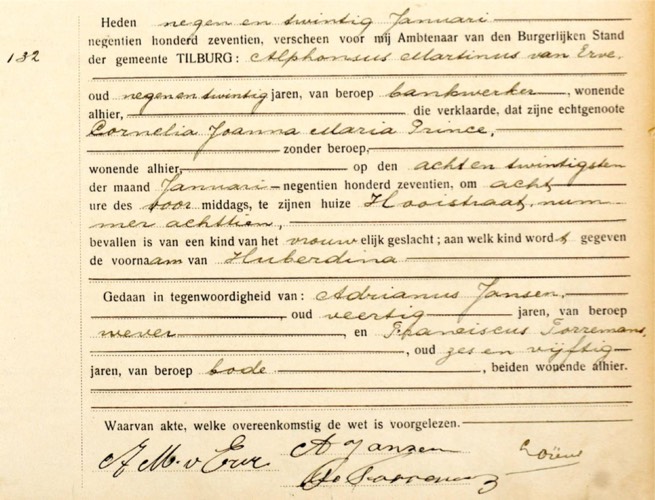 Heden negen en twintig Januari
negentien honderd zeventien, verscheen voor mij Ambtenaar van den Burgerlijken Stand
132
der gemeente TILBURG: Alphonsus Martinus van Erve,
oud negenentwintig jaren, van beroep bankwerker, wonende
alhier, die verklaarde, dat zijne echtgenoote
Cornelia Joanna Maria Prince,
zonder beroep,
wonende alhier, op den achtentwintigsten
der maand Januari negentien honderd zeventien, om acht
ure des voor middags, te zijnen huize Hooistraat, num-
mer achttien,
bevallen is van een kind van het vrouwelijk geslacht; aan welk kind wordt gegeven
de voornaam van Huberdina
Gedaan in tegenwoordigheid van: Adrianus Jansen,
, oud veertig jaren, van beroep
wever, en Franciscus Torremans,
, oud zes en vijftig
jaren, van beroep bode, beiden wonende alhier.
Waarvan akte, welke overeenkomstig de wet is voorgelezen.
A M. v Erve A Jansen